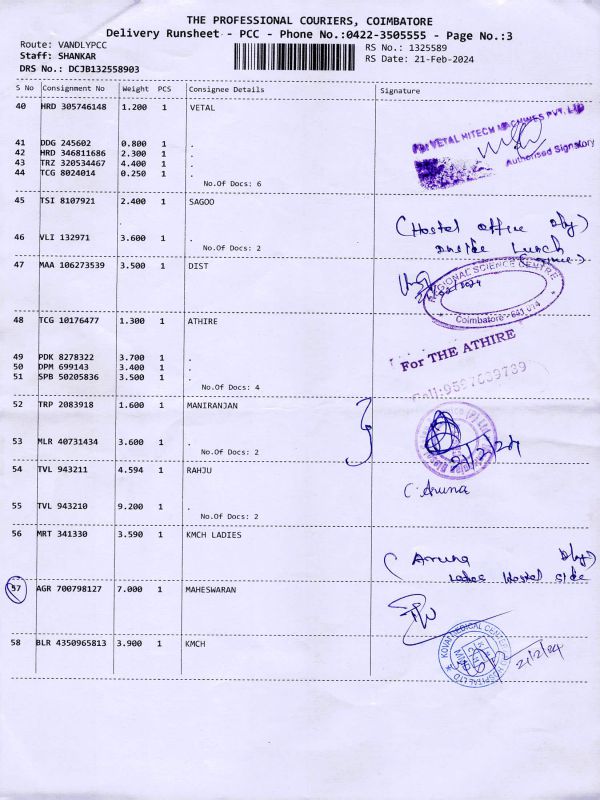 THE PROFESSIONAL COURIERS, COIMBATORE
Delivery Runsheet - PCC - Phone No.:0422-3505555 - Page No.:3
Route: VANDLYPCC
RS No.: 1325589
Staff: SHANKAR
RS Date: 21-Feb-2024
DRS No.: DCJB132558903
S No Consignment No Weight PCS Consignee Details Signature
40 HRD 305746148 1.200 1 VETAL
For VETAL HITECH MACHINES PVT. LTD
Authorised Signatory
41 DDG 245602 0.800 1 .
42 HRD 346811686 2.300 1 .
43 TRZ 320534467 4.400 1 .
44 TCG 8024014 0.250 1 .
No.Of Docs: 6
45 TSI 8107921 2.400 1 SAGOO
.
(Hostel office
46 VLI 132971 3.600 1 .
Lunch
No.Of Docs: 2
47 MAA 106273539 3.500 1 DIST
REGIONAL SCIENCE CENTRE
Coimbatore - 641 014
48 TCG 10176477 1.300 1 ATHIRE
For THE ATHIRE
49 PDK 8278322 3.700 1 .
50 DPM 699143 3.400 1 .
51 SPB 50205836 3.500 1 .
No.Of Docs: 4
52 TRP 2083918 1.600 1 MANIRANJAN
53 MLR 40731434 3.600 1 .
21/2/24
No.Of Docs: 2
54 TVL 943211 4.594 1 RAHJU
C. Aruna
55 TVL 943210 9.200 1 .
No.Of Docs: 2
56 MRT 341330 3.590 1 KMCH LADIES
(Aruna
Ladies Hostel side
57 AGR 700798127 7.000 1 MAHESWARAN
58 BLR 4350965813 3.900 1 KMCH
KOVAI MEDICAL CENTRE
HOSPITAL LTD
21/2/24